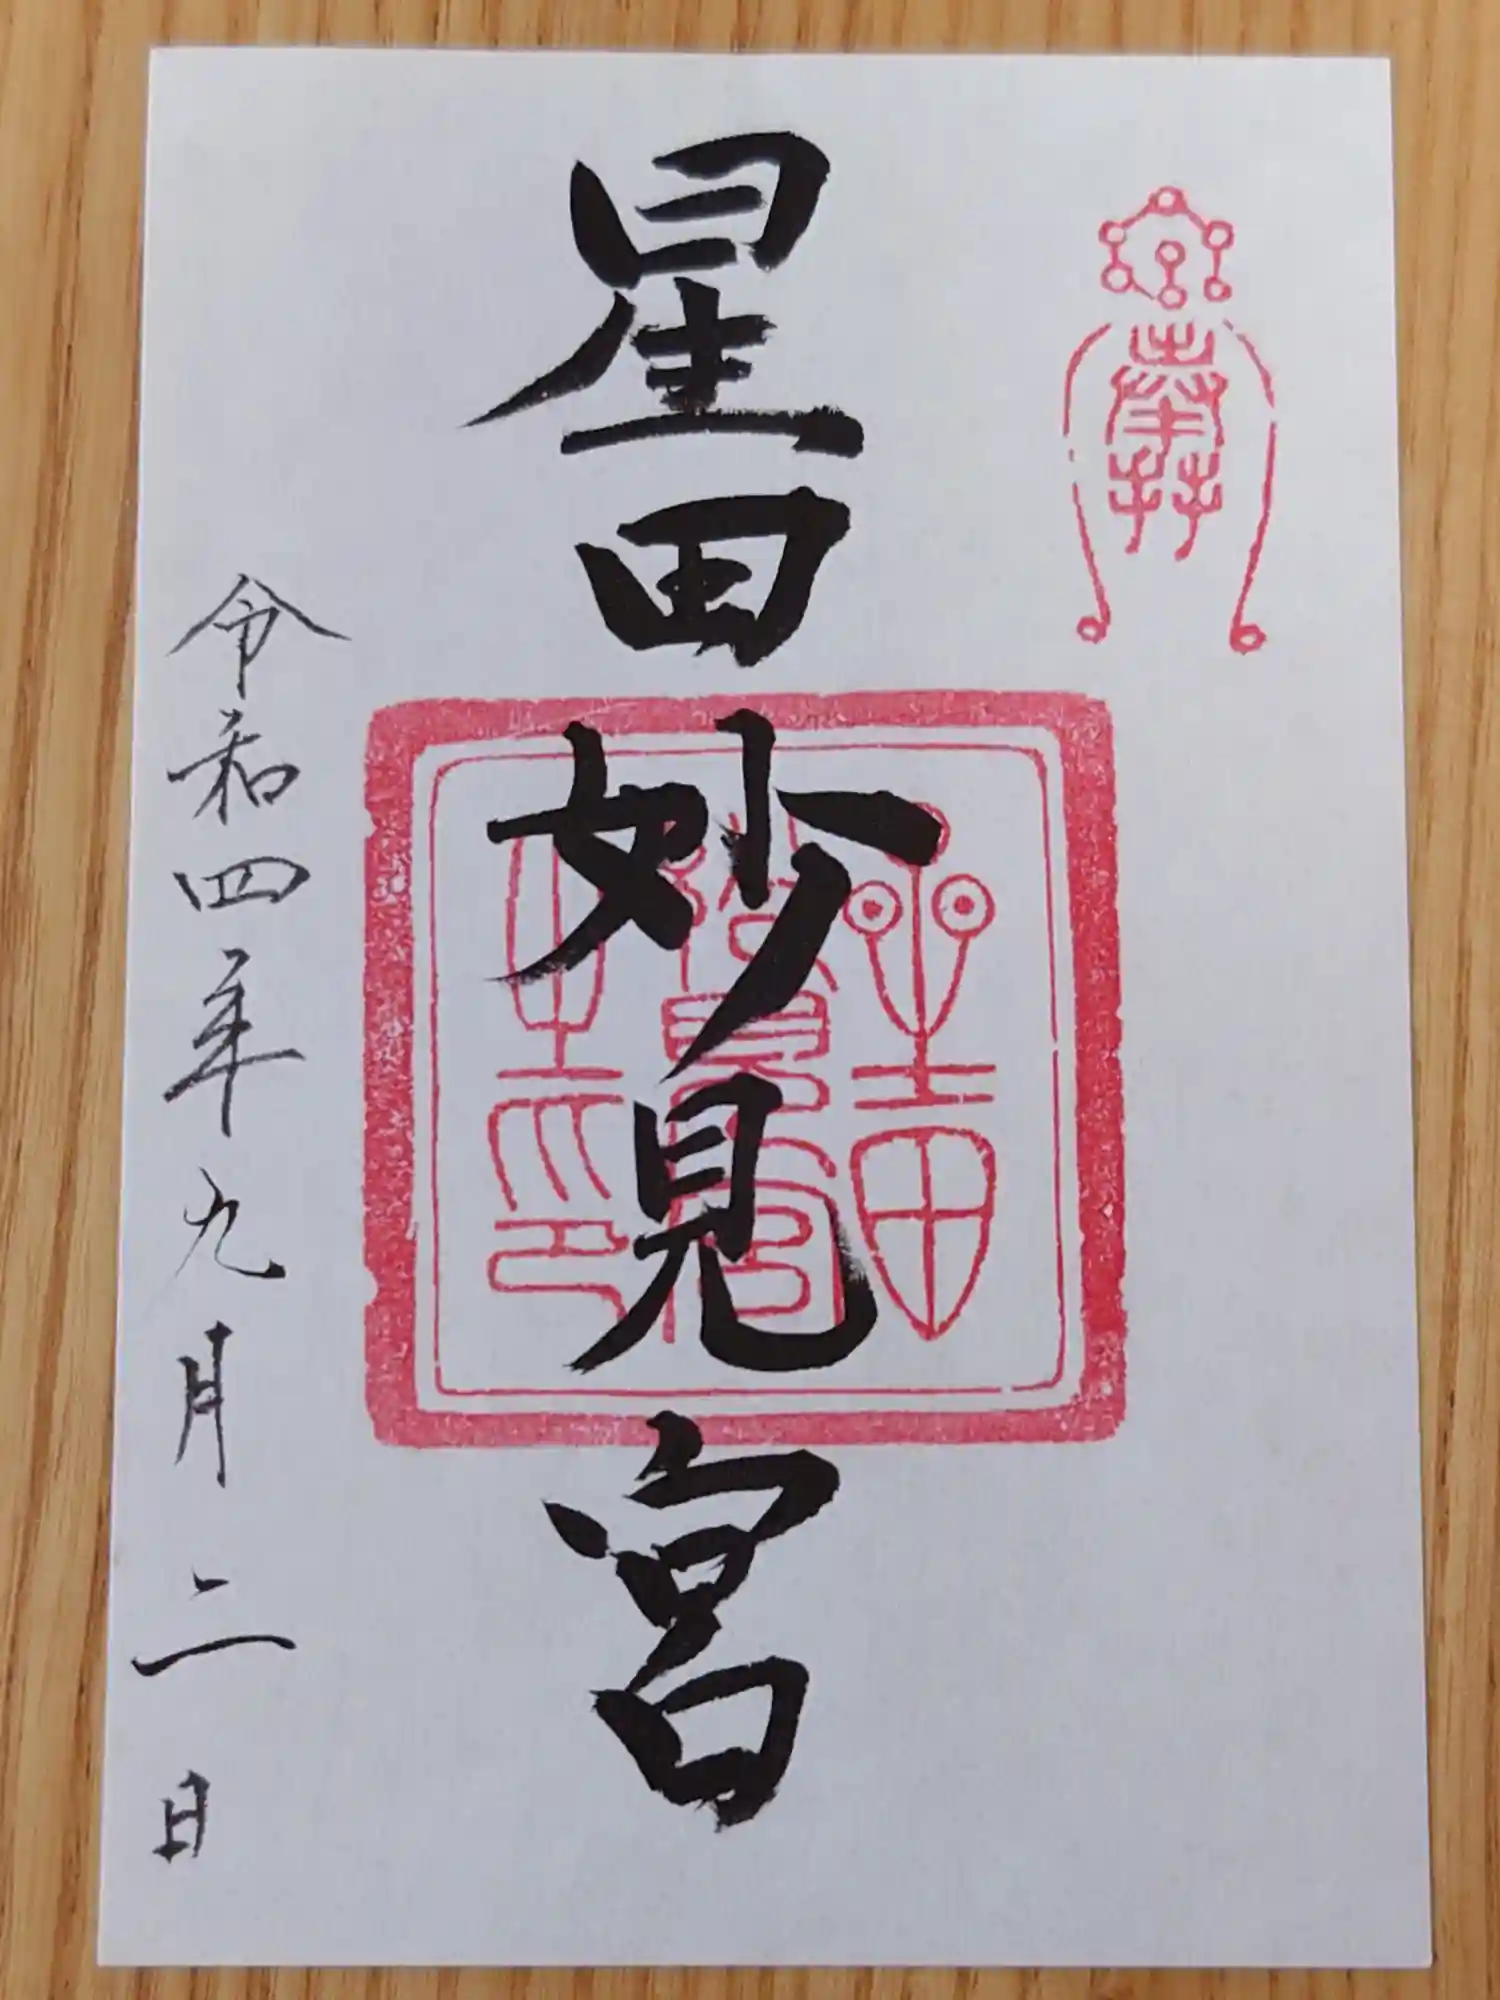 奉拝
星田妙見宮
星田
妙見宮
之印
令和四年九月二日